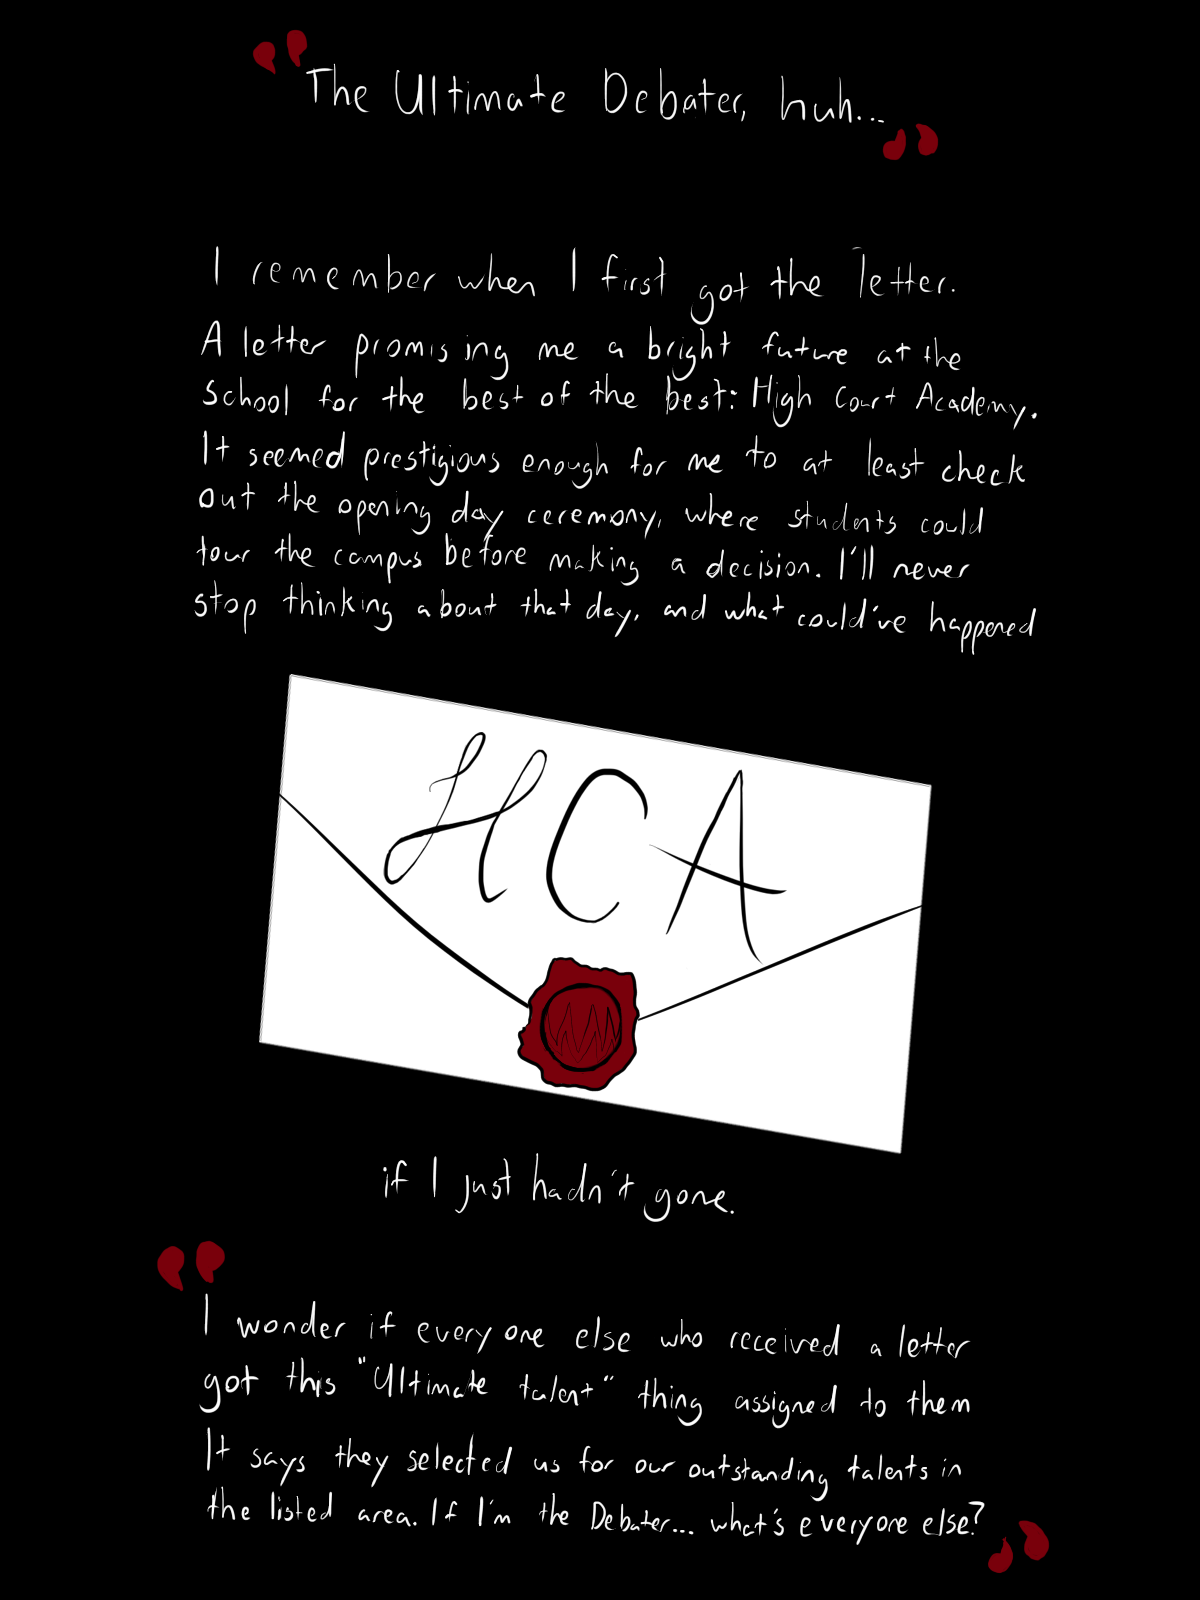 "The Ultimate Debater, huh..."
I remember when I first got the letter.
A letter promising me a bright future at the
school for the best of the best: High Court Academy.
It seemed prestigious enough for me to at least check
out the opening day ceremony, where students could
tour the campus before making a decision. I'll never
stop thinking about that day, and what could've happened
HCA
if I just hadn't gone.
"I wonder if everyone else who received a letter
got this "Ultimate talent" thing assigned to them
It says they selected us for our outstanding talents in
the listed area. If I'm the Debater... what's everyone else?"